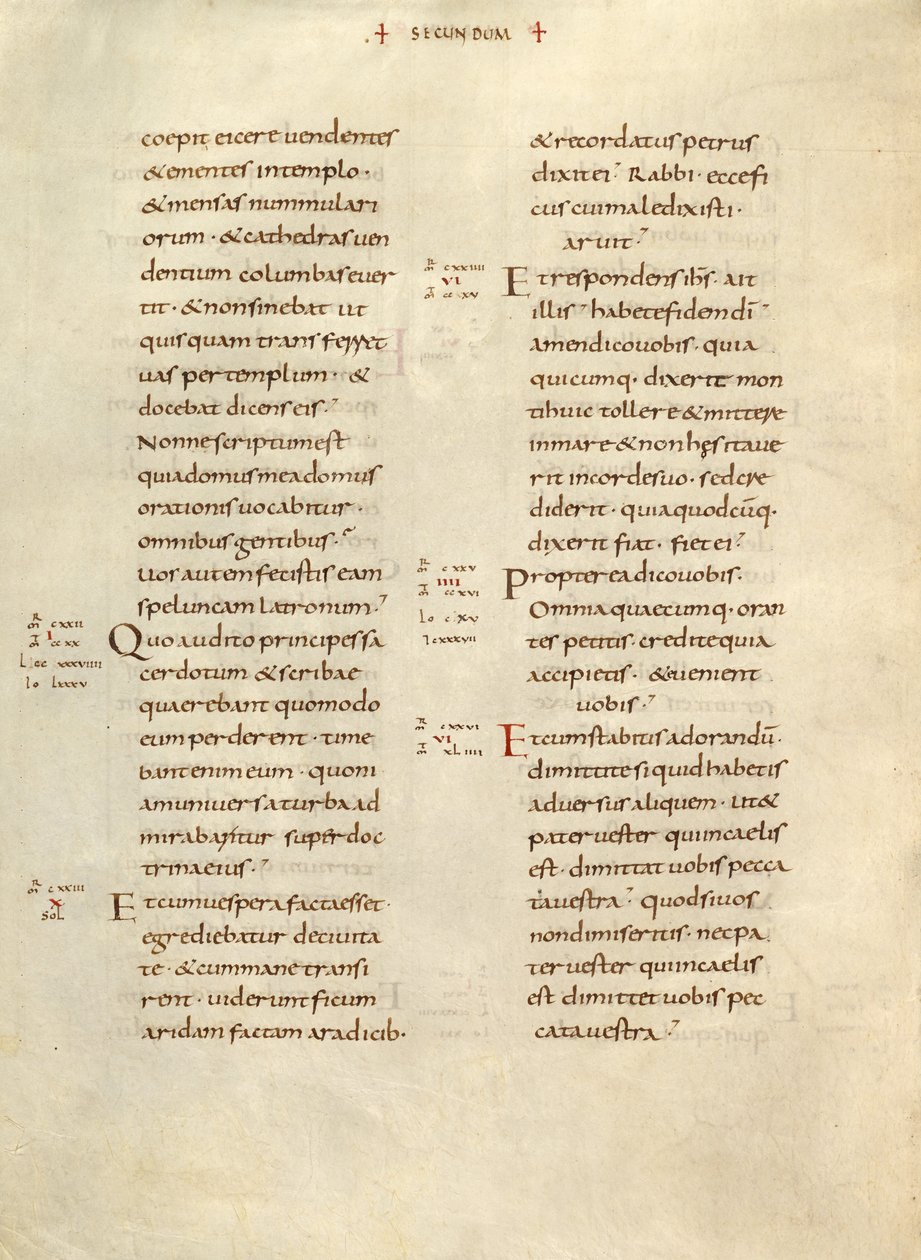 ✝ SECUNDUM ✝
coepit eicere uendentes
& ementes in templo ·
& mensas nummulari
orum · & cathedras uen
dentium columbas euer
tit · & non sinebat ut
quisquam transferret
uas per templum · &
docebat dicens eis ·
Nonne scriptum est
quia domus mea domus
orationis uocabitur ·
omnibus gentibus ·
uos autem fecistis eam
speluncam latronum ·
Quo audito principes sa
cerdotum & scribae
quaerebant quomodo
eum perderent · time
bant enim eum · quoni
am uniuersa turba ad
mirabatur super doc
trina eius ·
Et cum uespera facta esset ·
egrediebatur de ciuita
te · & cum mane transi
rent · uiderunt ficum
aridam factam a radicib·
cxxii
I ccxx
L cc xxxviiii
Io lxxxv
cxxiii
X
SOL
& recordatus petrus
dixit ei · Rabbi · ecce fi
cus cui maledixisti ·
aruit ·
Et respondens ihs̄ · ait
illis habete fidem dī
amen dico uobis · quia
quicumq· dixerit mon
ti huic tollere & mittere
in mare & non hęsitaue
rit in corde suo · sed cre
diderit · quia quodcūq·
dixerit fiat · fiet ei ·
Propterea dico uobis ·
Omnia quaecumq· oran
tes petitis · credite quia
accipietis · & euenient
uobis ·
Et cum stabitis ad orandū ·
dimittite si quid habetis
aduersus aliquem · ut &
pater uester qui in caelis
est · dimittat uobis pecca
ta uestra · quod si uos
non dimiseritis · nec pa
ter uester qui in caelis
est dimittet uobis pec
cata uestra ·
cxxiiii
VI
ccxv
cxxv
IIII
ccxvi
Io cxv
cxxvi
VI
xLiiii